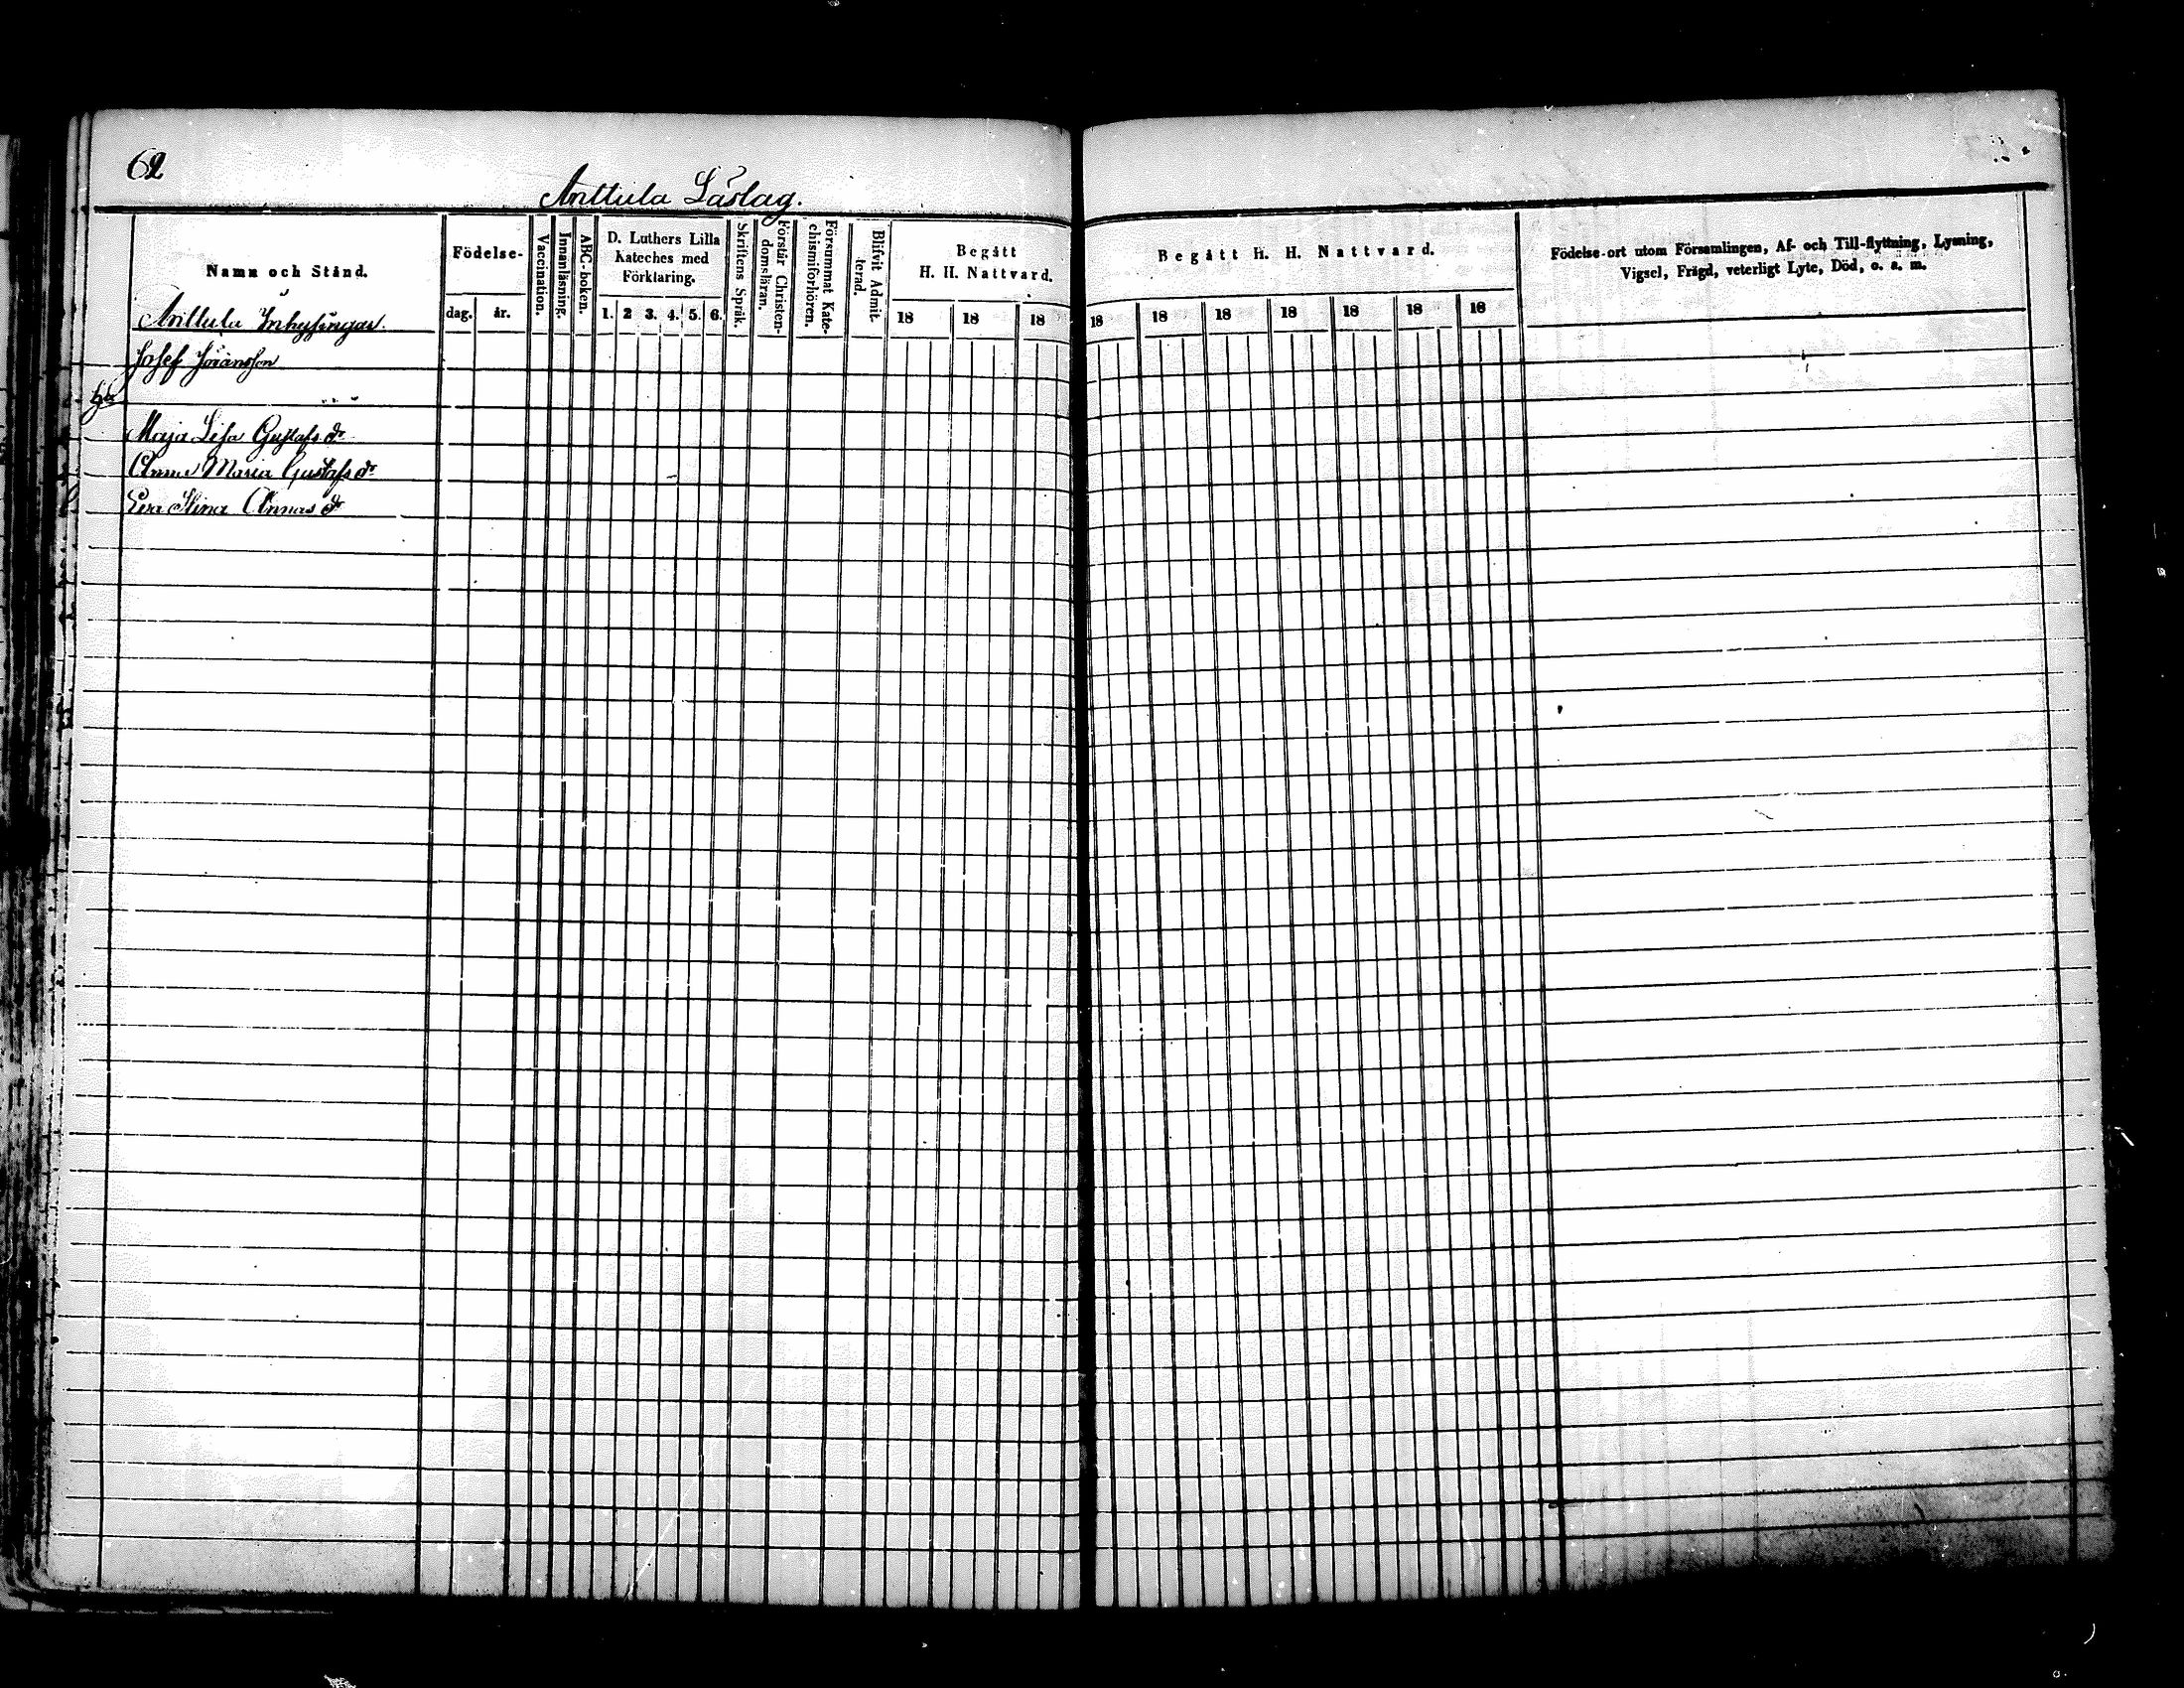 62
Anttula Läslag.
Namn och Stånd.
Födelse-
dag. år.
Vaccination.
Innanläsning.
ABC-boken.
D. Luthers Lilla
Kateches med
Förklaring.
1. 2 3. 4. 5. 6.
Skriftens Språk.
Förstår Christen-
domsläran.
Försummat Kate-
chismiförhören.
Blifvit Admit-
terad.
Begått
H. H. Nattvard.
18 18 18
Begått H. H. Nattvard.
18 18 18 18 18 18 18
Födelse-ort utom Församlingen, Af- och Till-flyttning, Lysning,
Vigsel, Frägd, veterligt Lyte, Död, o. a. m.
Anttula Inhysingar.
Josef Göransson
Maja Lisa Gustafs dr
Anna Maria Gustafs dr
Eva Stina Annas dr